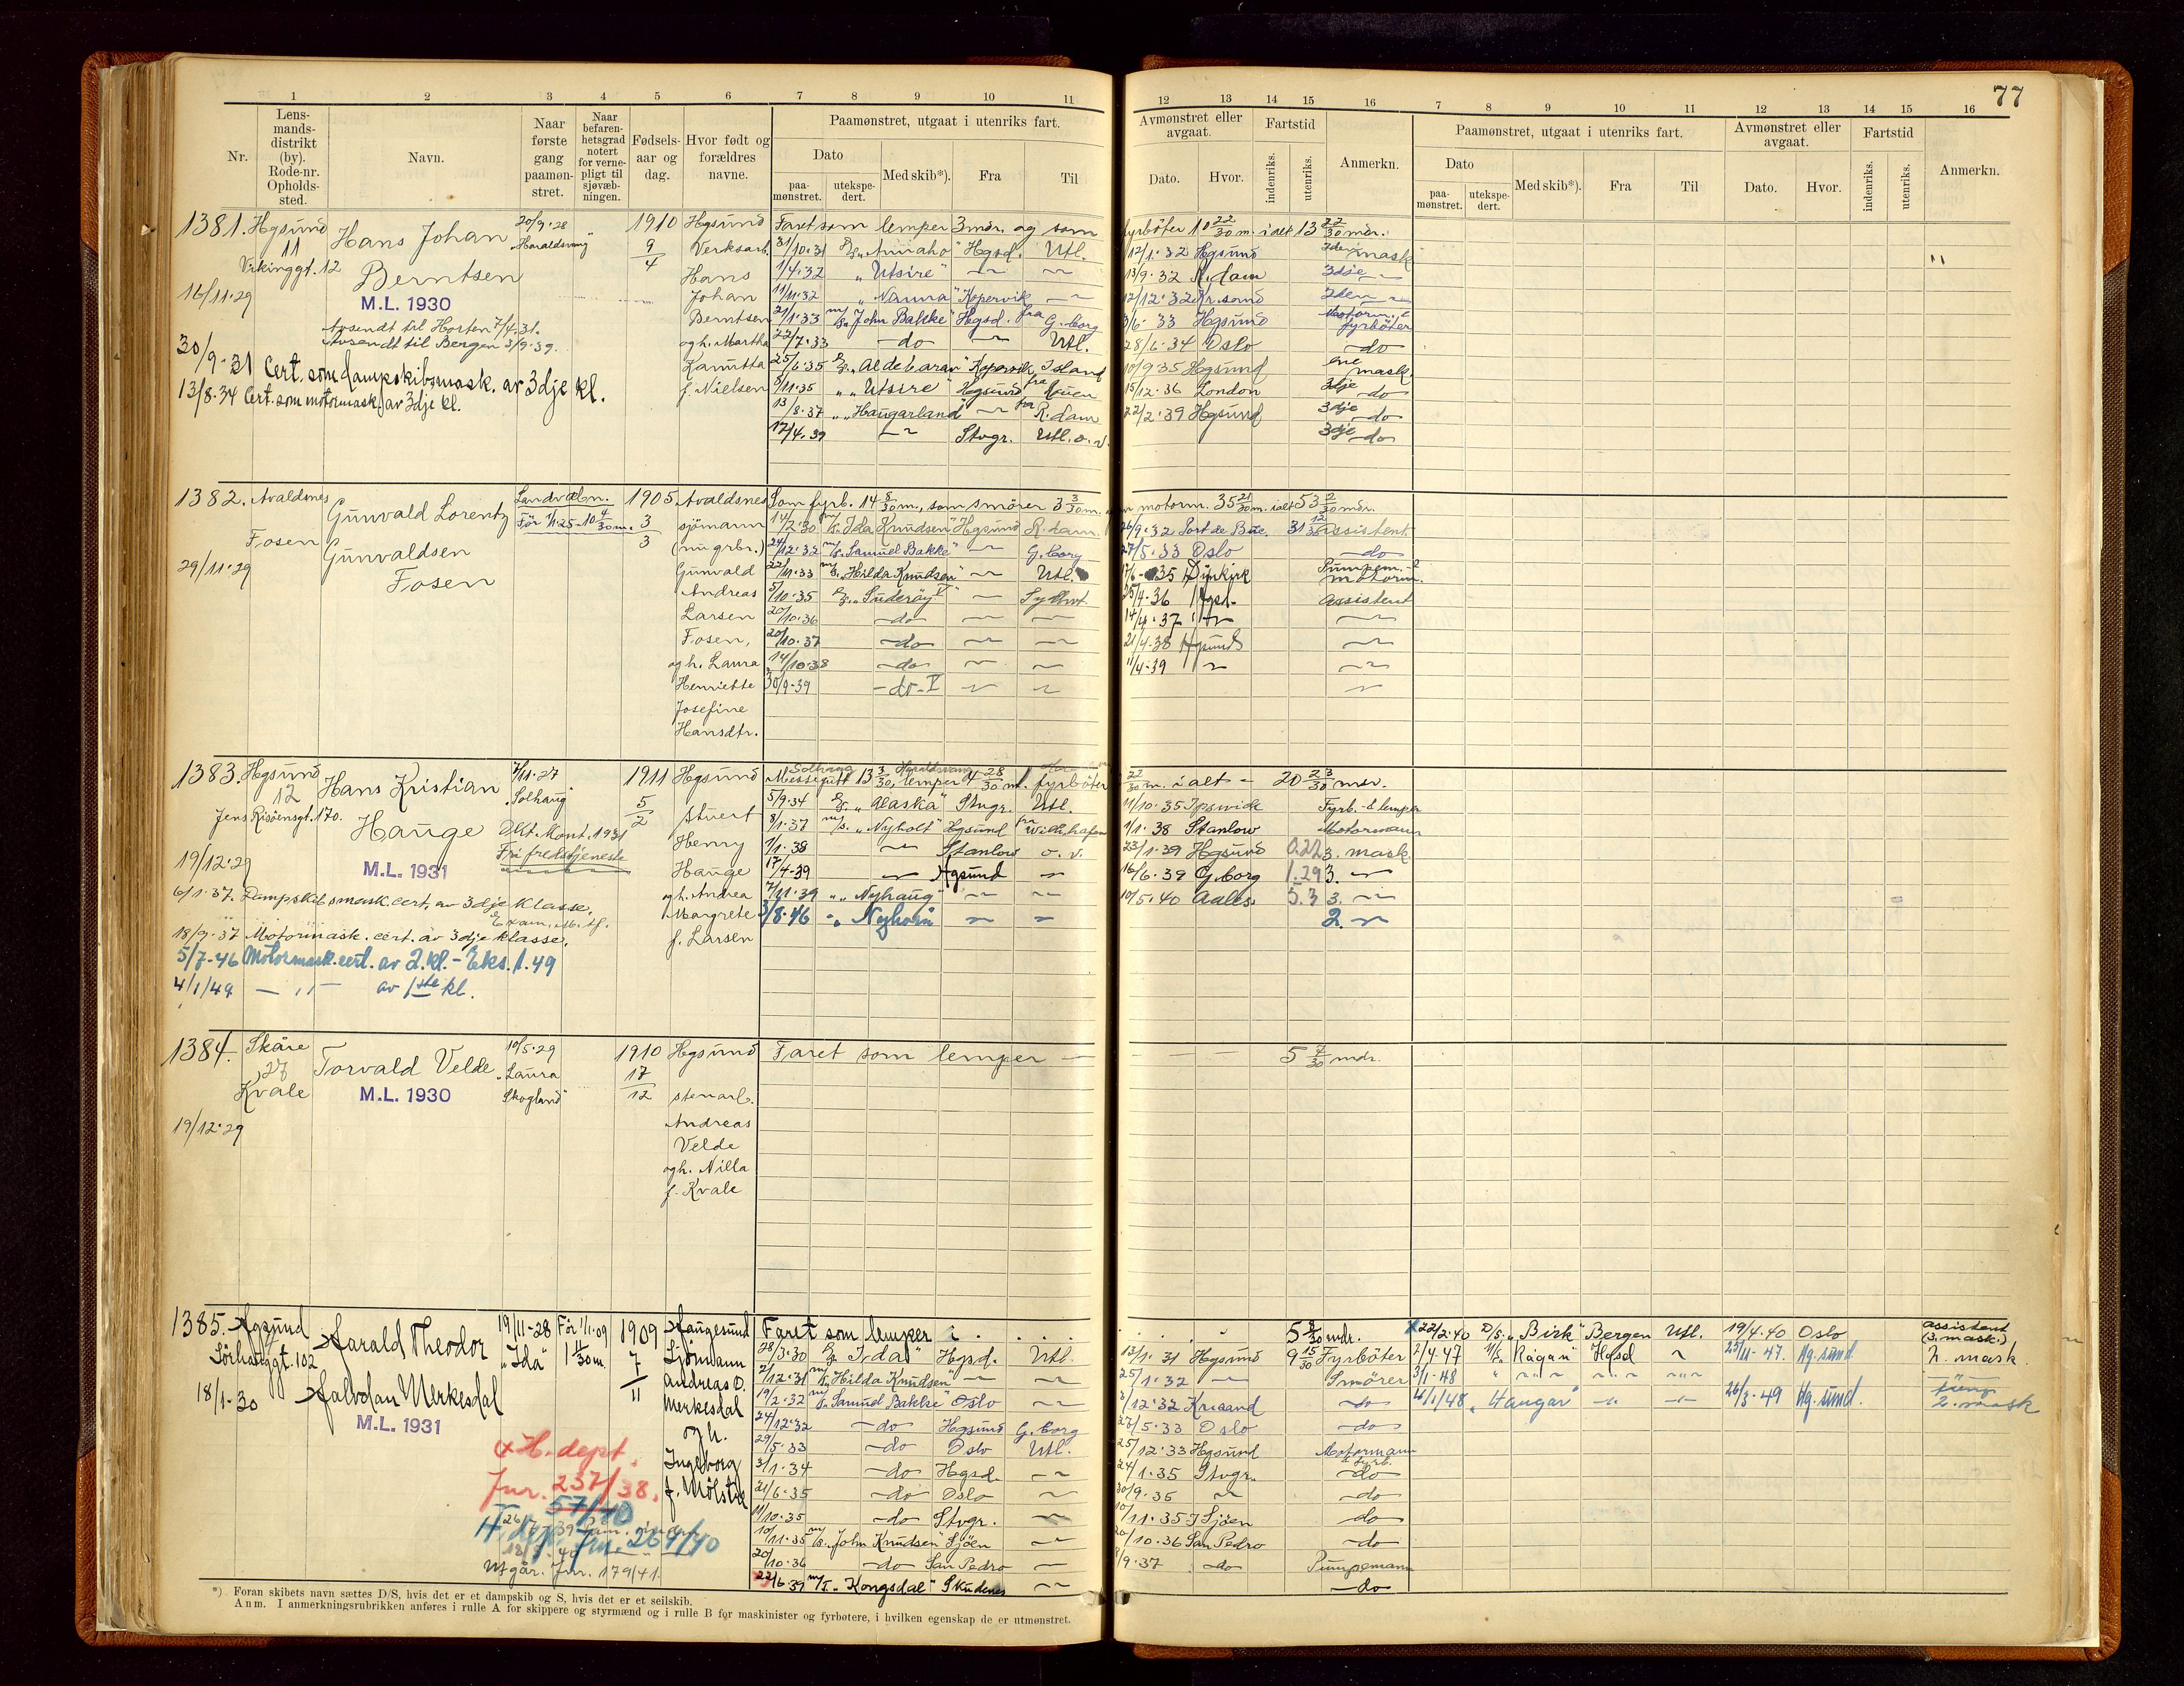 77
1 2 3 4 5 6 7 8 9 10 11 12 13 14 15 16 7 8 9 10 11 12 13 14 15 16
Nr.
Lens-
mands-
distrikt
(by).
Rode-nr.
Opholds-
sted.
Navn.
Naar
første
gang
paamøn-
stret.
Naar
befaren-
hetsgrad
notert
for verne-
pligt til
sjøvæb-
ningen.
Fødsels-
aar og
dag.
Hvor født og
forældres
navne.
Paamønstret, utgaat i utenriks fart.
Dato
paa-
mønstret.
utekspe-
dert.
Med skib*).
Fra
Til
Avmønstret eller
avgaat.
Dato.
Hvor.
Fartstid
indenriks.
utenriks.
Anmerkn.
Paamønstret, utgaat i utenriks fart.
Dato
paa-
mønstret.
utekspe-
dert.
Med skib*).
Fra
Til
Avmønstret eller
avgaat.
Dato.
Hvor.
Fartstid
indenriks.
utenriks.
Anmerkn.
1381. Hgsund
11
Vikinggt. 12
16/11.29
Hans Johan
Berntsen
M.L. 1930
Avsendt til Horten 7/4.31.
Avsendt til Bergen 3/9.39.
30/9.31 Cert. som dampskibsmask. av 3dje kl.
13/8.34 Cert. som motormask. av 3dje kl.
20/9.28
"Haraldsvang"
1910
9/4
Hgsund
Verksarb.
Hans
Johan
Berntsen
og h. Martha
Kamitta
f. Nielsen
Faret som lemper 3 mdr. og som fyrbøter 10 22/30 m. i alt 13 22/30 mdr.
31/10.31 "Annaho" Hgsd. Utl. 12/1.32 Hgsund 2den mask
1/4.32 "Utsire" 13/9.32 R.dam 3dje
11/11.32 "Nanna" Kopervik 12/12.32 Kr.sand 2den
21/1.33 m/s. "John Bakke" Hgsd. fra G.borg 3/6.33 Hgsund Motorm. & fyrböter
22/7.33 do Utl. 28/6.34 Oslo do
25/6.35 "Aldebaran" Kopervik Island 10/9.35 Hgsund ene mask.
9/11.35 "Utsire" Hgsund fra Rouen 15/12.36 London 3dje do
13/8.37 "Haugarland" fra R.dam 22/2.39 Hgsund 3dje do
17/4.39 Stvgr. Utl. o. v. 3dje do
1382. Avaldsnes
Fosen
29/11.29
Gunvald Lorentz
Gunvaldsen
Fosen
Landvebn.
Før 1/1.25 - 10 4/30 m.
1905
3/3
Avaldsnes
sjömann
(nu grbr.)
Gunvald
Andreas
Larsen
Fosen,
og h. Laura
Henriette
Josefine
Hansdtr.
Som fyrb. 14 8/30 m., som smører 3 3/30 m. motorm. 35 21/30 m. ialt 53 2/30 mdr.
14/2.30 m/s. "Ida Knudsen" Hgsund R.dam 26/9.32 Port de Buc. 31 12/30 Assistent
24/12.32 m/s. "Samuel Bakke" G.borg 27/5.33 Oslo do
22/11.33 m/s. "Hilda Knudsen" Utl. 17/6-35 Dunkirk Pumpem. & motorm.
5/10.35 "Suderöy" Sydhvt. 25/4.36 Hgsd. Assistent
20/10.36 do 14/4.37
20/10.37 do 21/4.38 Hgsund
14/10.38 do 11/4.39
30/9.39 do V
1383. Hgsund
12
Jens Risöensgt. 170.
19/12.29
Hans Kristian
Hauge
M.L. 1931
7/11.27
"Solhaug"
Okt. Mönt. 1931
Fri fredstjeneste
6/1.37. Dampskibsmask. cert. av 3dje klasse.
18/9.37 Motormask. cert. av 3dje klasse.
5/7-46 Motormask. cert. av 2. kl. - Eks. 1.49
4/1/49 av 1ste kl.
1911
5/2
Hgsund
stuert
Henry
Hauge
og h. Andrea
Margrete
f. Larsen
Solhaug Haraldsvang
Messegutt 13 3/30, lemper 4 28/30 m. fyrböter 22/30 m. i alt - 20 23/30 mdr.
5/9.34 "Alaska" Stvgr. Utl. 11/10.35 Ipswich Fyrb. & lemper
8/1.37 m/s. "Nyholt" Hgsund fra Wilh.hafen 1/1.38 Stanlow Motormann
1/1.38 Stanlow o. v. 23/1.39 Hgsund 0.22 3. mask.
17/4-39 Hgsund 16/6.39 G.borg 1.29 3.
7/11.39 "Nyhaug" 10/5.40 Aales. 5.3 3.
3/8.46 "Nyhorn" 2.
1384. Skåre
27
Kvale
19/12.29
Torvald Velde
M.L. 1930
10/5.29
"Laura
Skogland"
1910
17/12
Hgsund
stenarb.
Andreas
Velde
og h. Nilla
f. Kvale
Faret som lemper 5 7/30 mdr.
1385. Hgsund
Sörhauggt. 102
18/1-30
Harald Theodor
Halvdan Merkesdal
M.L. 1931
19/11-28
"Ida"
Før 1/1.09
1 11/30 m.
1909
7/11
Haugesund
Sjömann
Andreas O.
Merkesdal
og h.
Ingeborg
f. Mölstre
+ H. dept.
Jnr. 237/38.
57/40
H. dp. Jnr. 264/40
Utgår. Jnr. 179/41.
Faret som lemper i 5 8/30 mdr.
28/3.30 "Ida" Hgsd. Utl. 13/1.31 Hgsund 9 15/30 Fyrböter
7/12.31 m/s. "Hilda Knudsen" 25/1.32 Smører
19/2.32 m/s. "Samuel Bakke" Oslo 3/12.32 Kr.sand do
24/12.32 do Hgsund G.borg 27/5.33 Oslo do
29/5.33 do Oslo Utl. 25/12.33 Hgsund Motormann & fyrb.
3/1.34 do Hgsd. 24/1.35 Stvgr. do
21/6.35 do Oslo 30/9.35 do
11/10.35 do Stvgr. 10/11.35 I Sjöen do
10/11.35 m/s. "John Knudsen" Sjöen 20/10.36 San Pedro do
20/10.36 do San Pedro 1/9.37 do Pumpemann
22/6.39 m/T. "Kongsdal" Skudenes do
22/2.40 D/S. "Birk" Bergen Utl. 19/4.40 Oslo assistent (3. mask.)
2/4.47 "Ragan" Hgsd 25/11-47. Hg.sund. 2. mask.
3/1-48
4/1/48 "Haugar" 26/3-49 Hg.sund. 2. mask
*) Foran skibets navn sættes D/S, hvis det er et dampskib og S, hvis det er et seilskib.
Anm. I anmerkningsrubrikken anføres i rulle A for skippere og styrmænd og i rulle B for maskinister og fyrbøtere, i hvilken egenskap de er utmønstret.